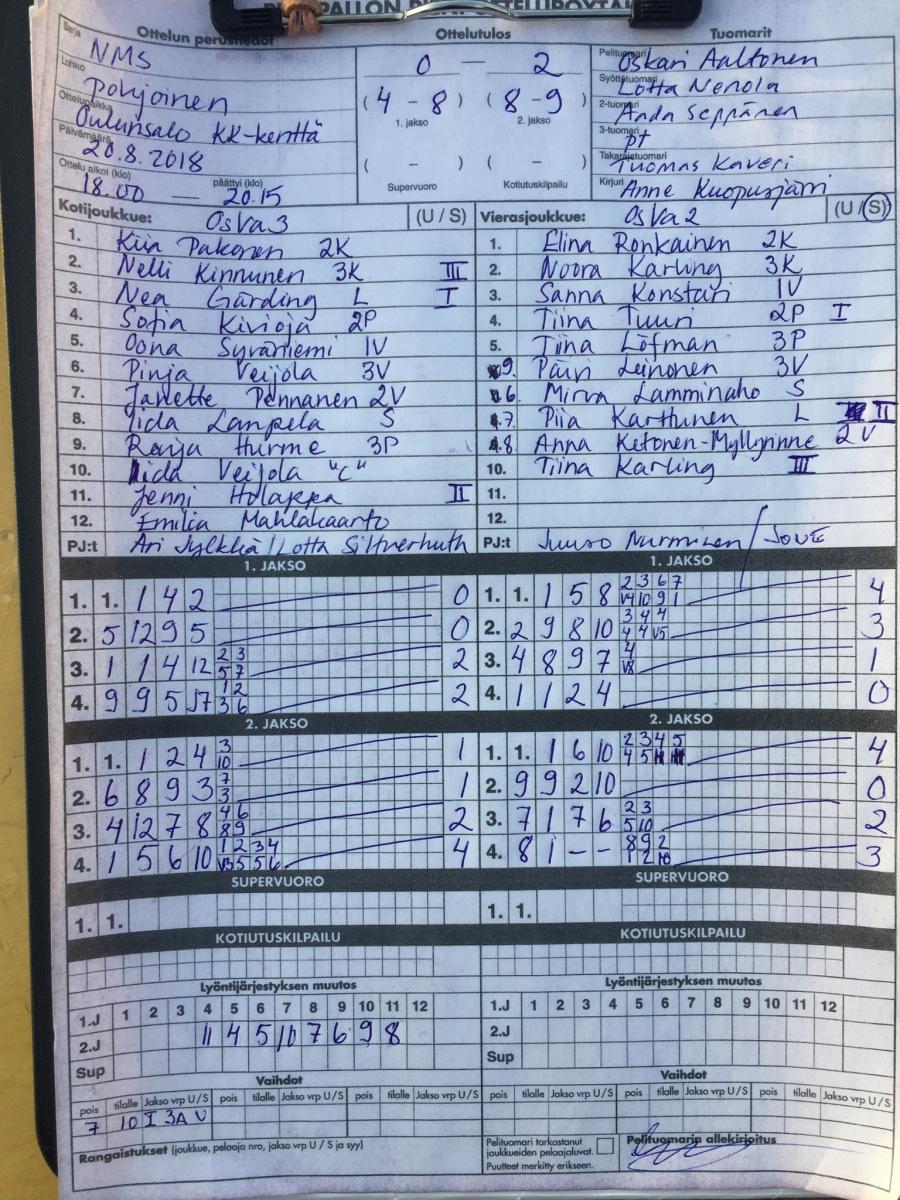 Ottelun perustiedot
Sarja NMS
Lohko Pohjoinen
Ottelupaikka Oulunsalo KK-kenttä
Päivämäärä 20.8.2018
Ottelu alkoi (klo) päättyi (klo)
18.00 — 20.15
Ottelutulos
0 — 2
(4 - 8) (8 - 9)
1. jakso 2. jakso
( - ) ( - )
Supervuoro Kotiutuskilpailu
Tuomarit
Pelituomari Oskari Aaltonen
Syöttötuomari Lotta Nenola
2-tuomari Anda Seppänen
3-tuomari pt
Takarajatuomari Tuomas Kaveri
Kirjuri Anne Kuopusjärvi
Kotijoukkue: OsVa 3 (U / S)
1. Kiia Pakonen 2K
2. Nelli Kinnunen 3K III
3. Nea Gärding L I
4. Sofia Kivioja 2P
5. Oona Syväniemi 1V
6. Pinja Veijola 3V
7. Janette Pennanen 2V
8. Iida Lampela S
9. Ronja Hurme 3P
10. Iida Veijola "C"
11. Jenni Holappa II
12. Emilia Mahlakaarto
PJ:t Ari Jylkkä / Lotta Siltnerhuth
Vierasjoukkue: OsVa 2 (U / S)
1. Elina Ronkainen 2K
2. Noora Karling 3K
3. Sanna Konstari 1V
4. Tiina Tuuri 2P I
5. Tiina Löfman 3P
9. Päivi Leinonen 3V
6. Mirva Lamminaho S
7. Piia Karthunen L II
8. Anna Ketonen-Myllynnne 2V
10. Tiina Karling III
11.
12.
PJ:t Juuso Nurminen / JOUE
1. JAKSO
1. 1. 1 4 2 0
2. 5 12 9 5 0
3. 1 1 4 12 2 3 2
5 7
4. 9 9 5 17 1 2 2
3 6
2. JAKSO
1. 1. 1 2 4 3 1
10
2. 6 8 9 3 7 1
3
3. 4 12 7 8 4 6 2
8 9
4. 1 5 6 10 1 2 3 4 4
V3 5 5 6
SUPERVUORO
1. 1.
KOTIUTUSKILPAILU
1. JAKSO
1. 1. 1 5 8 2 3 6 7 4
V4 10 9 1
2. 2 9 8 10 3 4 4 3
4 4 V5
3. 4 8 9 7 4 1
V8
4. 1 1 2 4 0
2. JAKSO
1. 1. 1 6 10 2 3 4 5 4
4 5
2. 9 9 2 10 0
3. 7 1 7 6 2 3 2
5 10
4. 8 1 - - 8 9 2 3
1 2 10
SUPERVUORO
1. 1.
KOTIUTUSKILPAILU
Lyöntijärjestyksen muutos
1.J 1 2 3 4 5 6 7 8 9 10 11 12
2.J 11 4 5 10 7 6 9 8
Sup
Vaihdot
pois tilalle Jakso vrp U/S pois tilalle Jakso vrp U/S pois tilalle Jakso vrp U/S
7 10 I 3A U
Rangaistukset (joukkue, pelaaja nro, jakso vrp U / S ja syy)
Lyöntijärjestyksen muutos
1.J 1 2 3 4 5 6 7 8 9 10 11 12
2.J
Sup
Vaihdot
pois tilalle Jakso vrp U/S pois tilalle Jakso vrp U/S pois tilalle Jakso vrp U/S
Pelituomari tarkastanut
joukkueiden pelaajaluvat.
Puutteet merkitty erikseen.
Pelituomarin allekirjoitus